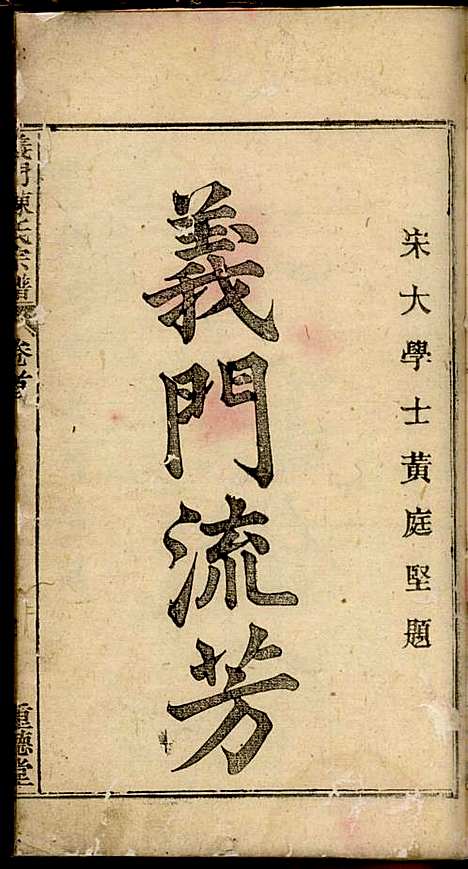 宋大學士黃庭堅題
義門流芳
義門陳氏宗譜
卷首
重德堂